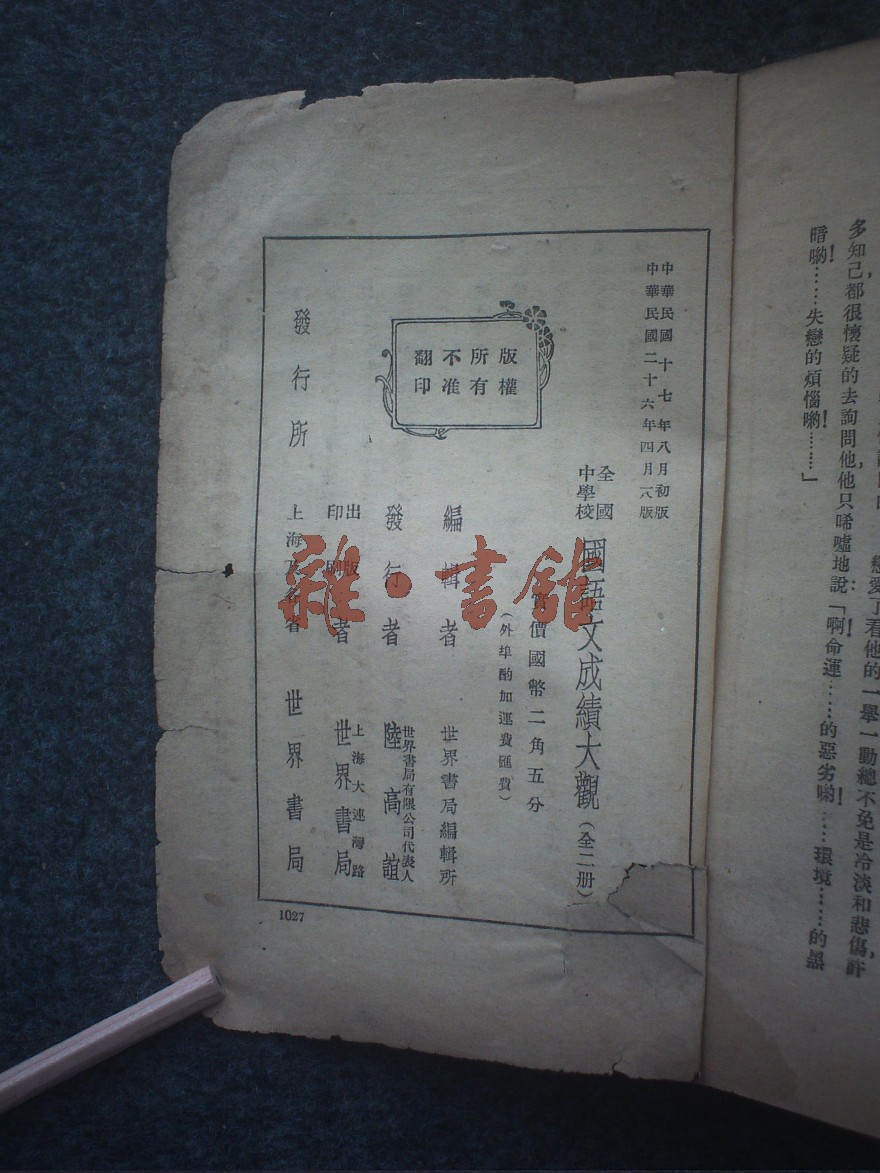 多知己都很懷疑的去詢問他，他只唏噓地說：「啊！命運……的惡劣喲！……環境……的黑
暗喲！……失戀的煩惱喲！………」
戀愛了看他的一舉一動總不免是冷淡和悲傷，許
中華民國十七年八月初版
中華民國二十六年四月八版
全國
中學校
國語文成績大觀（全二冊）
實價國幣二角五分
（外埠酌加運費匯費）
版權
所有
不准
翻印
編輯者 世界書局編輯所
發行者 世界書局有限公司代表人
陸高誼
出版
印刷
者 上海大連灣路
世界書局
發行所 上海及各省 世界書局
1027
雜·書館